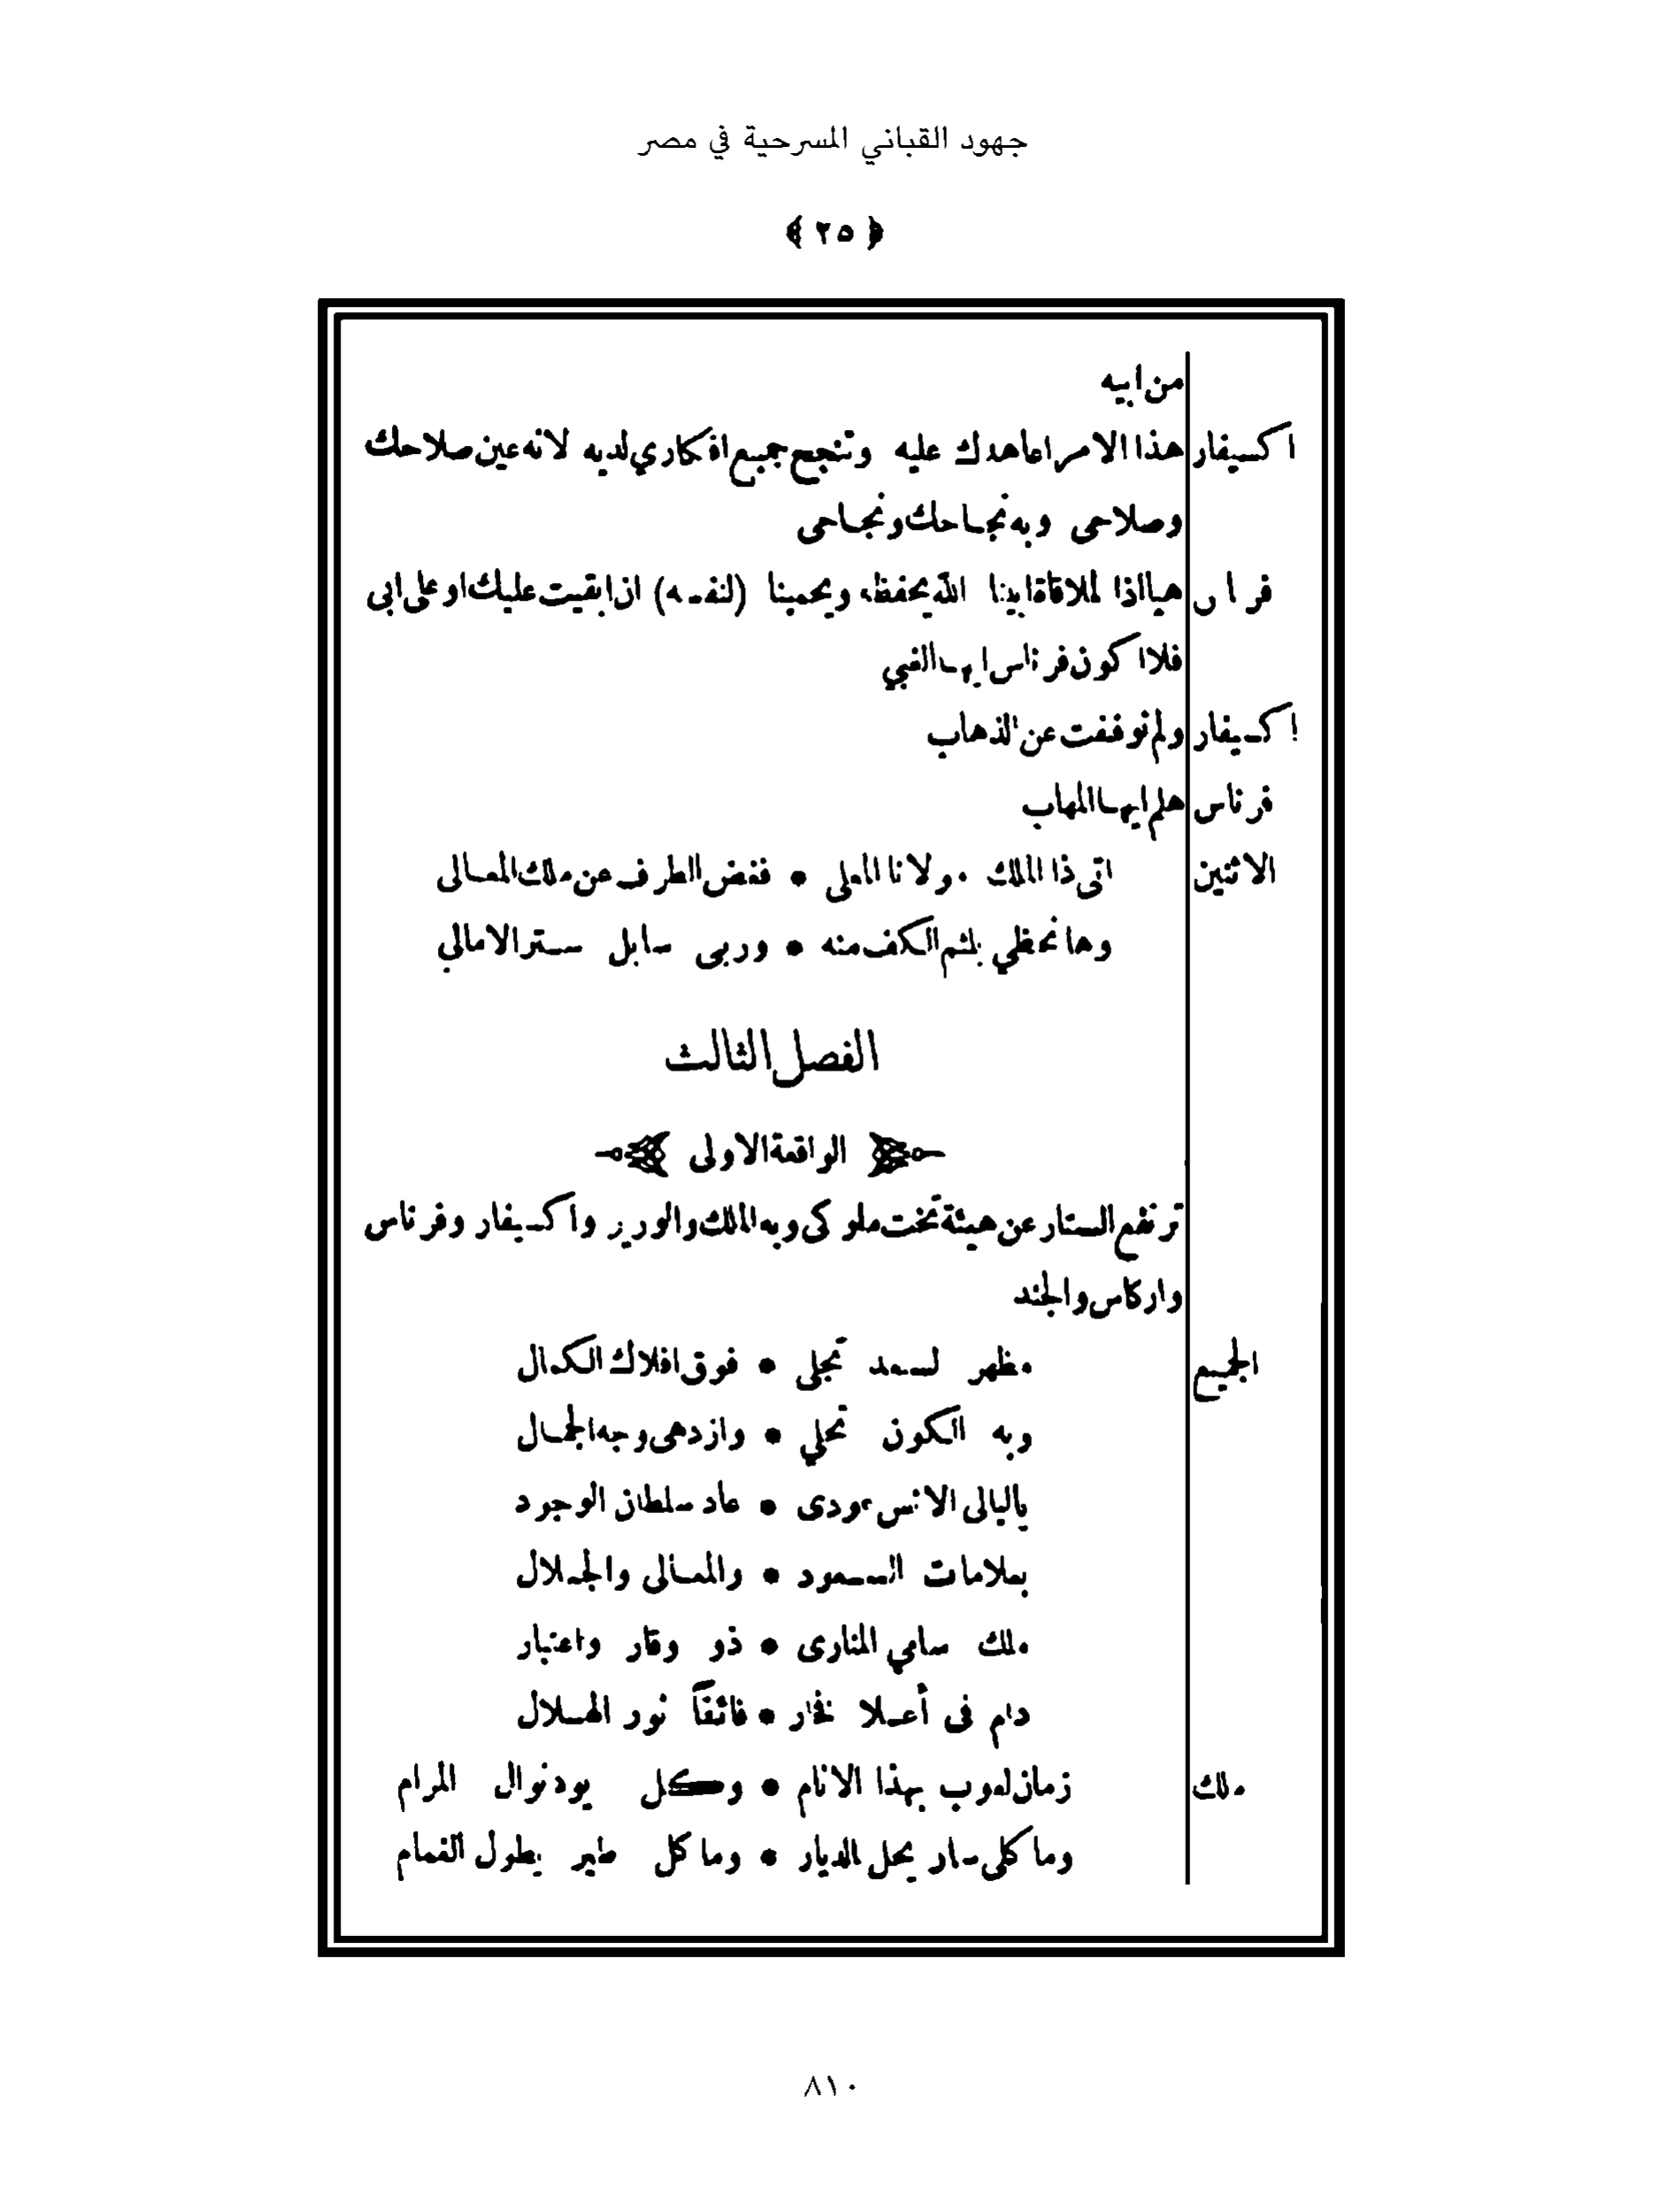 جهود القباني المسرحية في مصر
﴿ ٢٥ ﴾
من ابيه
اكسيفار هذا الامر اعاهدك عليه وتنجح جميع افكاري لديه لانه عين صلاحك
وصلاحى وبه نجاحك ونجاحى
فرناس هيا اذا لملاقاة ابينا الله يحفظه ويحمينا (لنفسه) ان ابقيت عليك او على ابى
فلا اكون فرناس ايها الغبي
اكسيفار ولم توقفت عن الذهاب
فرناس هلم ايها المهاب
الاثنين اتى ذا الملك مولانا المعلى * فغض الطرف عن ملك المعالى
وها نحظي بلثم الكف منه * وربى سابل ستر الامالي
الفصل الثالث
الواقعة الاولى
ترتفع الستار عن هيئة تخت ملوكى وبه الملك والوزير واكسيفار وفرناس
واركاس والجند
الجميع مظهر لسعد تجلى * فوق افلاك الكمال
وبه الكون تحلي * وازدهى وجه الجمال
ياليالى الانس عودى * عاد سلطان الوجود
بعلامات السعود * والمعالى والجلال
ملك سامي المنارى * ذو وقار واعتبار
دام فى أعلا فخار * فائقاً نور الهلال
ملك زمان لعوب بهذا الانام * وكل يود نوال المرام
وما كل سار يحل الديار * وما كل طير يطول الغمام
٨١٠